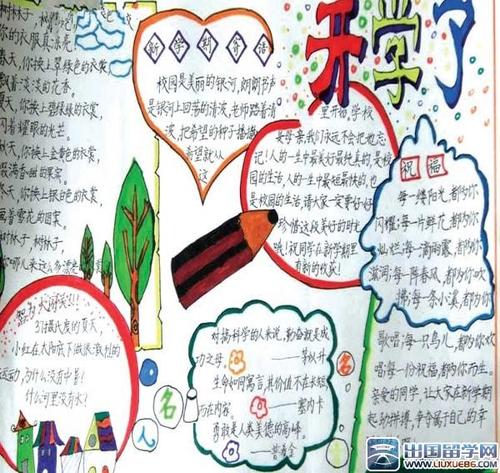 开学了
新学期寄语
校园是美丽的银河，朗朗书声
是银河上回荡的清波，老师踏着清
波，把希望的种子播撒
希望就从
这
里开始，学校
是母亲，我们永远不会把她忘
记！人的一生中最美好最纯真的，是校
园的生活，人的一生中最短最快的，也
是校园的生活，请大家一定要好好
珍惜这段美好的时光
哦！祝同学在新学期里
有新的收获！
祝福
每一缕阳光，都为你
闪耀；每一片鲜花，都为你
灿烂；每一滴雨露，都为你
滋润；每一阵春风，都为你吹
拂；每一条小溪，都为你
歌唱；每一只鸟儿，都为你欢
唱；每一份祝福，都为你而生。
亲爱的同学，让大家在新学期
起努力拼搏，争夺属于自己的幸
树林子，
你的衣服真漂亮
春天，你换上翠绿色的衣裳
飘着淡淡的花香。
夏天，你换上碧绿绿的衣裳，
闪着耀眼的光芒。
秋天，你换上金黄色的衣裳，
飘满香甜的果实
冬天，你换上
着雪花的图案。
树林子，树林子，
你哪儿来这么多漂亮
智力大闯关！！
37摄氏度的夏天，
小红在太阳底下做很激烈的
运动，为什么没有中暑！
什么河里没有水！
名人名
对搞科学的人来说，勤奋就是成
功之母。——茅以升
生命如同寓言，其价值不在长短
而在内容。——塞内卡
勇敢是人类美德的高峰。
出国留学网
WWW.LIUXUE86.COM